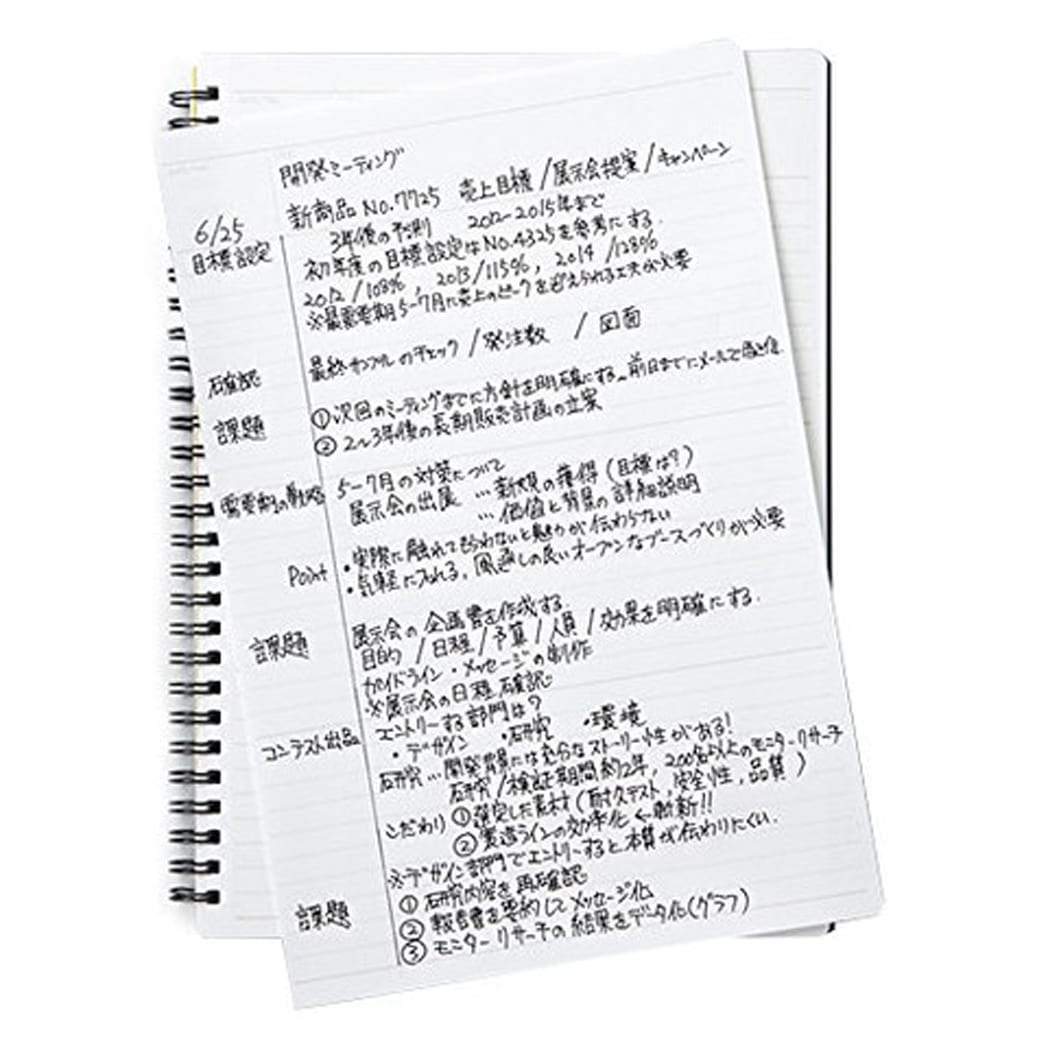 開発ミーティング
新商品 No.7725 売上目標/展示会提案/キャンペーン
6/25
3年後の予測 2012-2015年まで
目標設定
初年度の目標設定はNo.4325を参考にする.
2012/108%, 2013/115%, 2014/128%
※最需要期5-7月に売上のピークを迎えられる工夫が必要
確認
最終サンプルのチェック/発注数 /図面
課題
①次回のミーティングまでに方針を明確にする。前日までにメールで送信.
②2~3年後の長期販売計画の立案
需要期の戦略
5-7月の対策について
展示会の出展 …新規の獲得(目標は?)
…価値と背景の詳細説明
Point
・実際に触れてもらわないと魅力が伝わらない
・気軽に入れる、風通しの良いオープンなブースづくりが必要
課題
展示会の企画書を作成する.
目的/日程/予算/人員/効果を明確にする.
ガイドライン・メッセージの制作
※展示会の日程確認
コンテスト出品
エントリーする部門は?
・デザイン ・研究 ・環境
研究…開発背景には充分なストーリー性がある!
研究/検証期間約2年, 200名以上のモニターリサーチ
こだわり ①選定した素材(耐久テスト,安全性,品質)
②製造ラインの効率化←斬新!!
※デザイン部門でエントリーすると本質が伝わりにくい.
課題
①研究内容を再確認
②報告書を要約してメッセージ化
③モニターリサーチの結果をデータ化(グラフ)